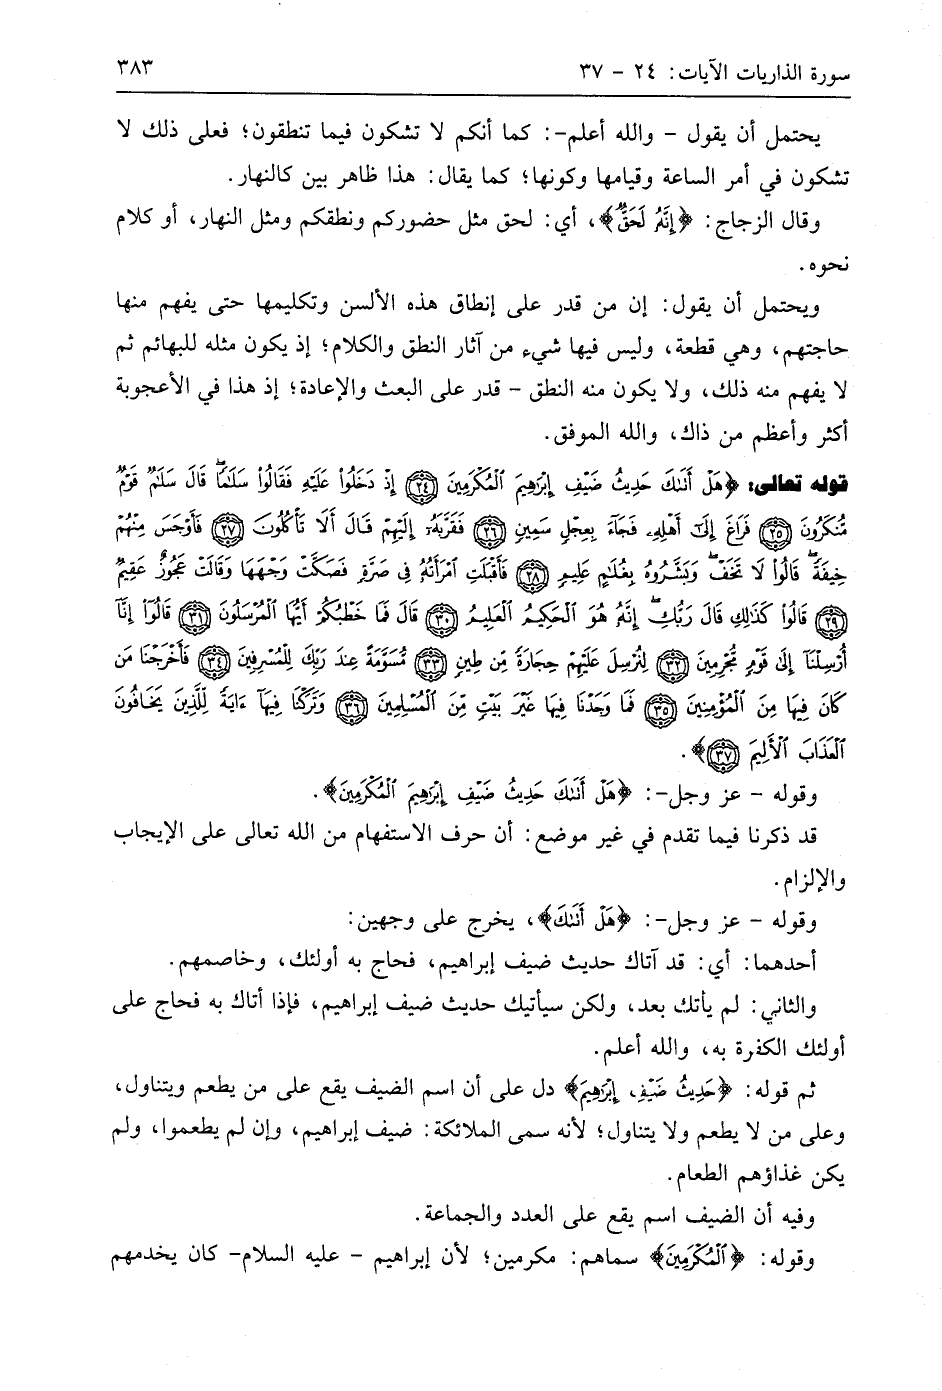 سورة الذاريات الآيات: ٢٤ - ٣٧ ٣٨٣
يحتمل أن يقول - والله أعلم-: كما أنكم لا تشكون فيما تنطقون؛ فعلى ذلك لا
تشكون في أمر الساعة وقيامها وكونها؛ كما يقال: هذا ظاهر بين كالنهار.
وقال الزجاج: ﴿إِنَّهُ لَحَقٌّ﴾، أي: لحق مثل حضوركم ونطقكم ومثل النهار، أو كلام
نحوه.
ويحتمل أن يقول: إن من قدر على إنطاق هذه الألسن وتكليمها حتى يفهم منها
حاجتهم، وهي قطعة، وليس فيها شيء من آثار النطق والكلام؛ إذ يكون مثله للبهائم ثم
لا يفهم منه ذلك، ولا يكون منه النطق - قدر على البعث والإعادة؛ إذ هذا في الأعجوبة
أكثر وأعظم من ذاك، والله الموفق.
قوله تعالى: ﴿هَلْ أَتَىٰكَ حَدِيثُ ضَيْفِ إِبْرَٰهِيمَ ٱلْمُكْرَمِينَ ٢٤ إِذْ دَخَلُوا۟ عَلَيْهِ فَقَالُوا۟ سَلَٰمًا ۖ قَالَ سَلَٰمٌ قَوْمٌ
مُّنكَرُونَ ٢٥ فَرَاغَ إِلَىٰٓ أَهْلِهِۦ فَجَآءَ بِعِجْلٍ سَمِينٍ ٢٦ فَقَرَّبَهُۥٓ إِلَيْهِمْ قَالَ أَلَا تَأْكُلُونَ ٢٧ فَأَوْجَسَ مِنْهُمْ
خِيفَةً ۖ قَالُوا۟ لَا تَخَفْ ۖ وَبَشَّرُوهُ بِغُلَٰمٍ عَلِيمٍ ٢٨ فَأَقْبَلَتِ ٱمْرَأَتُهُۥ فِى صَرَّةٍ فَصَكَّتْ وَجْهَهَا وَقَالَتْ عَجُوزٌ عَقِيمٌ
٢٩ قَالُوا۟ كَذَٰلِكِ قَالَ رَبُّكِ ۖ إِنَّهُۥ هُوَ ٱلْحَكِيمُ ٱلْعَلِيمُ ٣٠ قَالَ فَمَا خَطْبُكُمْ أَيُّهَا ٱلْمُرْسَلُونَ ٣١ قَالُوٓا۟ إِنَّآ
أُرْسِلْنَآ إِلَىٰ قَوْمٍ مُّجْرِمِينَ ٣٢ لِنُرْسِلَ عَلَيْهِمْ حِجَارَةً مِّن طِينٍ ٣٣ مُّسَوَّمَةً عِندَ رَبِّكَ لِلْمُسْرِفِينَ ٣٤ فَأَخْرَجْنَا مَن
كَانَ فِيهَا مِنَ ٱلْمُؤْمِنِينَ ٣٥ فَمَا وَجَدْنَا فِيهَا غَيْرَ بَيْتٍ مِّنَ ٱلْمُسْلِمِينَ ٣٦ وَتَرَكْنَا فِيهَآ ءَايَةً لِّلَّذِينَ يَخَافُونَ
ٱلْعَذَابَ ٱلْأَلِيمَ ٣٧﴾.
وقوله - عز وجل-: ﴿هَلْ أَتَىٰكَ حَدِيثُ ضَيْفِ إِبْرَٰهِيمَ ٱلْمُكْرَمِينَ﴾.
قد ذكرنا فيما تقدم في غير موضع: أن حرف الاستفهام من الله تعالى على الإيجاب
والإلزام.
وقوله - عز وجل-: ﴿هَلْ أَتَىٰكَ﴾، يخرج على وجهين:
أحدهما: أي: قد آتاك حديث ضيف إبراهيم، فحاج به أولئك، وخاصمهم.
والثاني: لم يأتك بعد، ولكن سيأتيك حديث ضيف إبراهيم، فإذا أتاك به فحاج على
أولئك الكفرة به، والله أعلم.
ثم قوله: ﴿حَدِيثُ ضَيْفِ إِبْرَٰهِيمَ﴾ دل على أن اسم الضيف يقع على من يطعم ويتناول،
وعلى من لا يطعم ولا يتناول؛ لأنه سمى الملائكة: ضيف إبراهيم، وإن لم يطعموا، ولم
يكن غذاؤهم الطعام.
وفيه أن الضيف اسم يقع على العدد والجماعة.
وقوله: ﴿ٱلْمُكْرَمِينَ﴾ سماهم: مكرمين؛ لأن إبراهيم - عليه السلام- كان يخدمهم